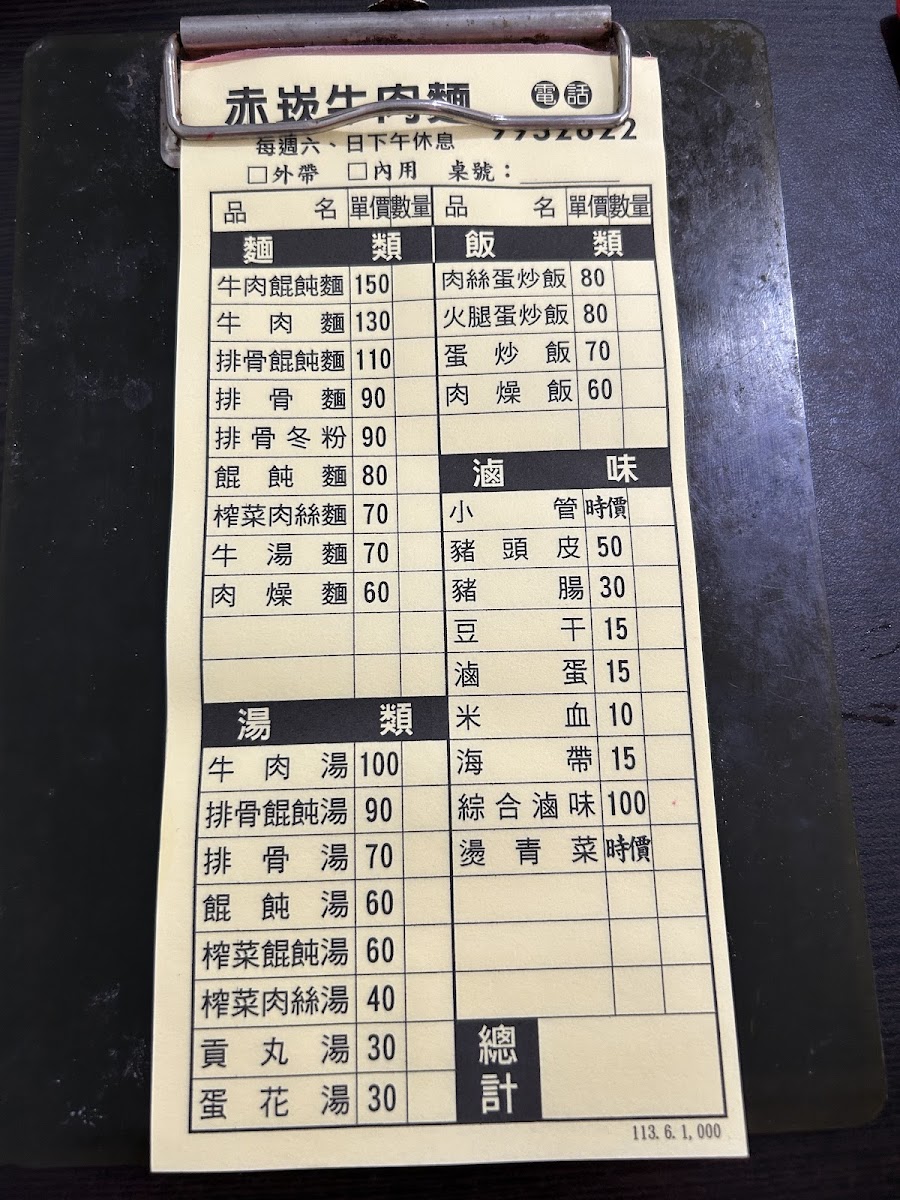 赤崁牛肉麵 電話
9932622
每週六、日下午休息
□外帶 □內用 桌號：
品名 單價 數量 品名 單價 數量
麵類
牛肉餛飩麵 150
牛肉麵 130
排骨餛飩麵 110
排骨麵 90
排骨冬粉 90
餛飩麵 80
榨菜肉絲麵 70
牛湯麵 70
肉燥麵 60
湯類
牛肉湯 100
排骨餛飩湯 90
排骨湯 70
餛飩湯 60
榨菜餛飩湯 60
榨菜肉絲湯 40
貢丸湯 30
蛋花湯 30
飯類
肉絲蛋炒飯 80
火腿蛋炒飯 80
蛋炒飯 70
肉燥飯 60
滷味
小管 時價
豬頭皮 50
豬腸 30
豆干 15
滷蛋 15
米血 10
海帶 15
綜合滷味 100
燙青菜 時價
總計
113.6.1,000